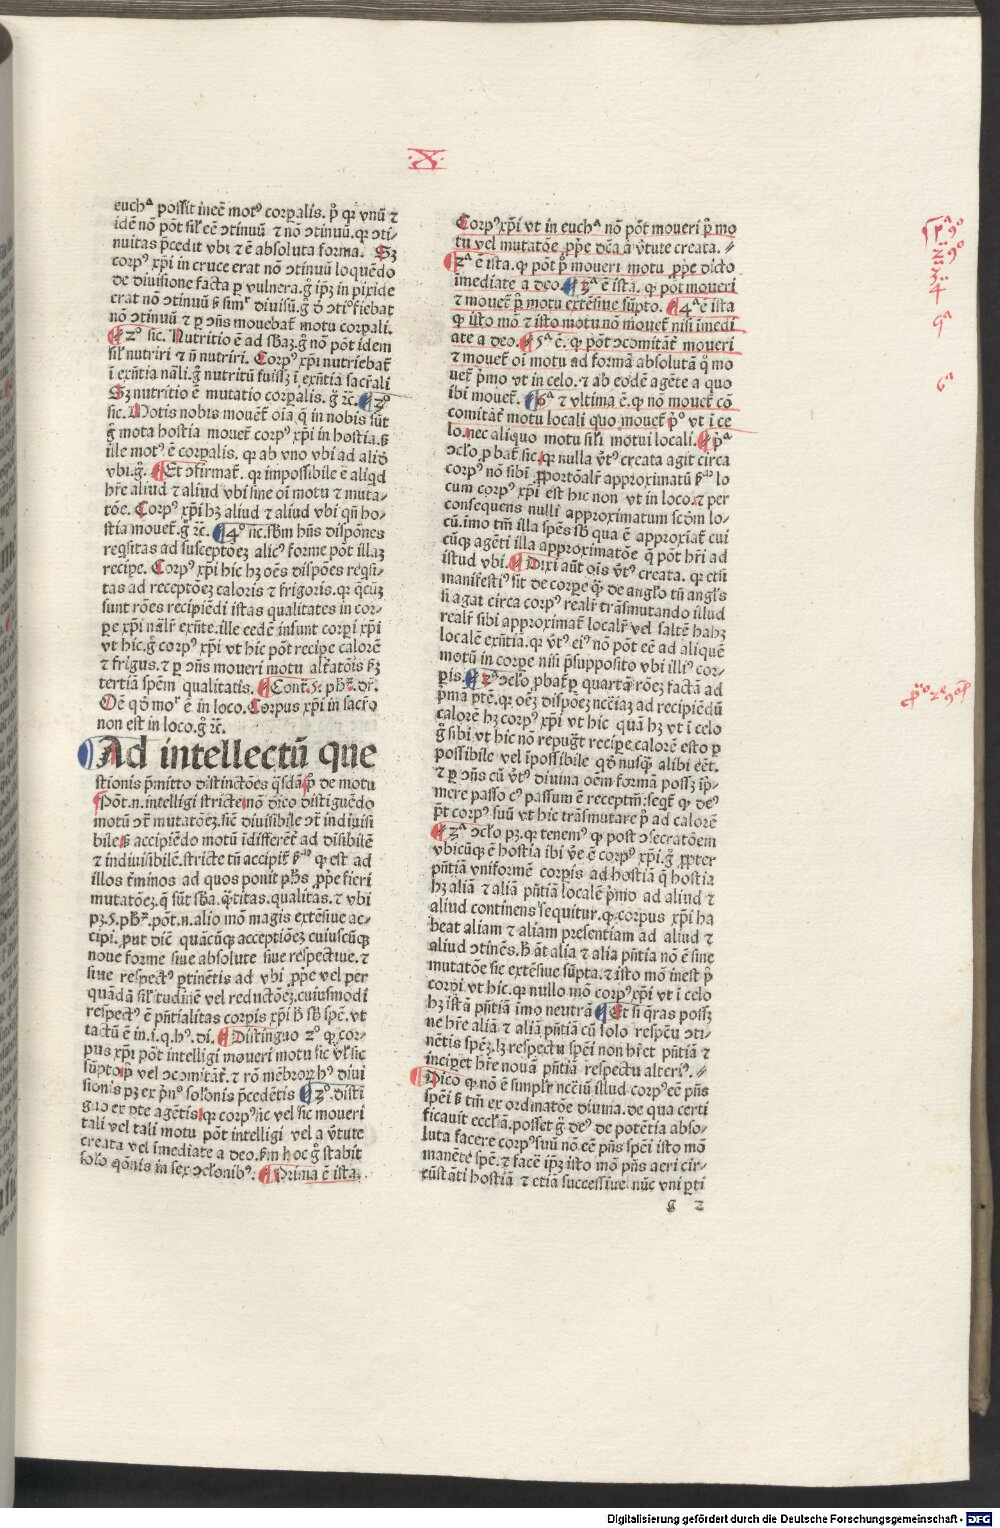 X
euchᵃ possit ineē motꝰ corꝑalis. p̄ qꝛ vnū ⁊
idē nō pōt sil̓ eē ↄtinuū ⁊ nō ↄtinuū. qꝛ ↄti-
nuitas p̄cedit vbi ⁊ ē absoluta forma. Sꝫ
corpꝰ xp̄i in cruce erat nō ↄtinuū loquēdo
de diuisione facta ꝑ vulnera. g̊ ip̄ꝫ in pixide
erat nō ↄtinuū
nō ↄtinuū ⁊ ꝑ ↄn̄s mouebat̄ motu corꝑali.
¶ 2° sic. Nutritio ē ad sb̄aꝫ. g̊ nō pōt idem
sil̓ nutriri ⁊ n̄ nutriri. Corpꝰ xp̄i nutriebat̄
ī exn̄tia nāli. g̊ nutritū fuisſꝫ ī exn̄tia sacr̄ali
Sꝫ nutritio ē mutatio corꝑalis. g̊ ⁊c̄. ¶ 3°
sic. Motis nobis mouēt̄ oīa q̄ in nobis sūt
g̊ mota hostia mouet̄ corpꝰ xp̄i in hostia. sꝫ
ille motꝰ ē corꝑalis. qꝛ ab vno vbi ad aliđ
vbi. g̊. ¶ Et ↄfirmat̄. qꝛ impossibile ē aliqđ
hr̄e aliud ⁊ aliud vbi sine oī motu ⁊ muta-
tōe. Corpꝰ xp̄i hꝫ aliud ⁊ aliud vbi qn̄ ho-
stia mouet̄. g̊ ⁊c̄. ¶ 4° sic. sb̄m hn̄s dispōnes
reqͥsitas ad susceptōeꝫ alicꝰ forme pōt illaꝫ
recipe. Corpꝰ xp̄i hic hꝫ oēs dispōes reqͥsi-
tas ad receptōeꝫ caloris ⁊ frigoris. qꝛ q̄cūqꝫ
sunt rōes recipiēdi istas qualitates in cor-
ꝑe xp̄i nāl̓r exn̄te. ille eedē insunt corꝑi xp̄i
vt hic. g̊ corpꝰ xp̄i vt hic pōt recipe calorē
⁊ frigus. ⁊ ꝑ ↄn̄s moueri motu alt̄atōis
tertiā spēm qualitatis. ¶ Cont̄.
Oē qđ mot̄ ē in loco. Corpus xp̄i in sacr̄o
non est in loco. g̊ ⁊c̄.
Ad intellectū que
stionis p̄mitto distinctōes q̄sdā. p̄ de motu
Pōt. n. intelligi stricte nō dīco distiguēdo
motū ↄt̄ mutatōeꝫ. sic̄ diuisibile ↄt̄ indiuisi
bile sꝫ accipiēdo motū idifferēt̄ ad diuisibilē
⁊ indiuisibilē. stricte tn̄ accipit̄ qꝛ est ad
illos t̄minos ad quos ponit ph̄s ꝓp̄e fieri
mutatōeꝫ. q̄ sūt sb̄a. q̄titas. qualitas. ⁊ vbi
pꝫ. 5. ph̄ꝫ. pōt. n. alio mō magis extēsiue ac-
cipi. ꝓut dic̄ quācūqꝫ acceptiōeꝫ cuiuscūqꝫ
noue forme siue absolute siue respectiue. ⁊
siue respectꝰ ꝑtinētis ad vbi ꝓp̄e vel per
quādā sil̓itudinē vel reductōeꝫ. cuiusmodi
respectꝰ ē pn̄tialitas corꝑis xp̄i h̄ sb̄ spē. vt
tactū ē in. i. q. hꝰ. di. ¶ Distinguo 2° qꝛ cor-
pus xp̄i pōt intelligi moueri motu sic
sūpto p̄ vel ↄcomitāt̄. ⁊ rō mēbroꝝ hꝰ diui
sionis pꝫ ex p̄n° sol̓onis p̄cedētis ¶ 3°. disti
guo ex ꝑte agētis qꝛ corpꝰ sic vel sic moueri
tali vel tali motu pōt intelligi vel a v̄tute
creata vel īmediate a deo. sꝫm hoc g̊ stabit
solo qōnis in sex ↄclonibꝰ. ¶ Prima ē ista.
Corpꝰ xp̄i vt in euchᵃ nō pōt moueri p̄ mo
tu vel mutatōe ꝓp̄e dc̄a a v̄tute creata.
¶ 2ᵃ ē ista. qꝛ pōt p̄ moueri motu ꝓp̄e dicto
īmediate a deo. ¶ 3ᵃ ē ista. qꝛ pōt moueri
⁊ mouet̄ p̄ motu extēsiue sūpto. ¶ 4ᵃ ē ista
qꝛ isto mō ⁊ isto motu nō mouet̄ nisi īmedi
ate a deo. ¶ 5ᵃ ē. qꝛ pōt ↄcomitāt̄ moueri
⁊ mouet̄ oī motu ad formā absolutā q̊ mo
uet̄ p̄mo vt in celo. ⁊ ab eodē agēte a quo
ibi mouet̄. ¶ 6ᵃ ⁊ vltima ē. qꝛ nō mouet̄ cō
comitāt̄ motu locali quo mouet̄ p̄° vt ī ce
lo. nec aliquo motu sil̓i motui locali. ¶ pᵃ
ↄclo ꝓbat̄ sic. qꝛ nulla v̄tꝰ creata agit circa
corpꝰ nō sibi ꝓportōal̓r approximatū lo
cum corpꝰ xp̄i est hic non vt in loco. ⁊ per
consequens nulli approximatum scd̄m lo-
cū. imo tm̄ illa spēs sb̄ qua ē approxīat̄ cui
cūqꝫ agēti illa approximatōe q̄ pōt hr̄i ad
istud vbi. ¶ Dixi aūt oīs v̄tꝰ creata. qꝛ etsi
manifestiꝰ sit de corꝑe qͣꝫ de angl̓o tn̄ angl̓s
si agat circa corpꝰ real̓r trāsmutando illud
real̓r sibi approximat̄ local̓r vel saltē habꝫ
localē exn̄tia. qꝛ v̄tꝰ eiꝰ nō pōt eē ad aliquē
motū in corꝑe nisi p̄supposito vbi illiꝰ cor-
ꝑis. ¶ 2ᵃ ↄclo ꝓbat̄ ꝑ quartā rōeꝫ factā ad
p̄ma ꝑtē. qꝛ oēs dispōeꝫ nec̄iaꝫ ad recipiēdū
calorē hꝫ corpꝰ xp̄i vt hic quā hꝫ vt ī celo
g̊ sibi vt hic nō repugt̄ recipe calorē esto ꝑ
possibile vel īpossibile qđ nusqͣꝫ alibi eēt.
⁊ ꝑ ↄn̄s cū v̄tꝰ diuina oēm formā possꝫ īp̄i-
mere passo cꝰ passum ē receptiū. seqͥt̄ qꝛ deꝰ
pōt corpꝰ suū vt hic trāsmutare p̄ ad calorē
¶ 3ᵃ ↄclo pꝫ. qꝛ tenemꝰ qꝛ post ↄsecratōem
vbicūqꝫ ē hostia ibi v̄e ē corpꝰ xp̄i. g̊ ꝓpter
pn̄tiā vniformē corꝑis ad hostiā q̄ hostia
hꝫ aliā ⁊ aliā pn̄tiā localē p̄mo ad aliud ⁊
aliud continens sequitur. qꝛ corpus xp̄i ha
beat aliam ⁊ aliam presentiam ad aliud ⁊
aliud ↄtinēs. h̄ āt alia ⁊ alia pn̄tia nō ē sine
mutatōe sic extēsiue sūpta. ⁊ isto mō inest p̄
corꝑi vt hic. qꝛ nullo mō corpꝰ xp̄i vt ī celo
hꝫ istā pn̄tiā imo neutrā ¶ Et si q̄ras possꝫ
ne hr̄e aliā ⁊ aliā pn̄tiā cū solo respc̄u ↄti-
nētis speꝫ. lꝫ respectu spēi non hr̄et pn̄tiā ⁊
inciꝑet hr̄e nouā pn̄tiā respectu alteriꝰ.
¶ Dico qꝛ nō ē simpl̓r nc̄ciū illud corpꝰ eē pn̄s
spēi sꝫ tm̄ ex ordinatōe diuina. de qua certi
ficauit eccl̓iā. posset g̊ deꝰ de potētia abso-
luta facere corpꝰ suū nō eē pn̄s spēi isto mō
manēte spē. ⁊ facē ip̄ꝫ isto mō pn̄s aeri cir-
cūstāti hostiā ⁊ etiā successiue nūc vni ꝑti
g 2
Digitalisierung gefördert durch die Deutsche Forschungsgemeinschaft - DFG